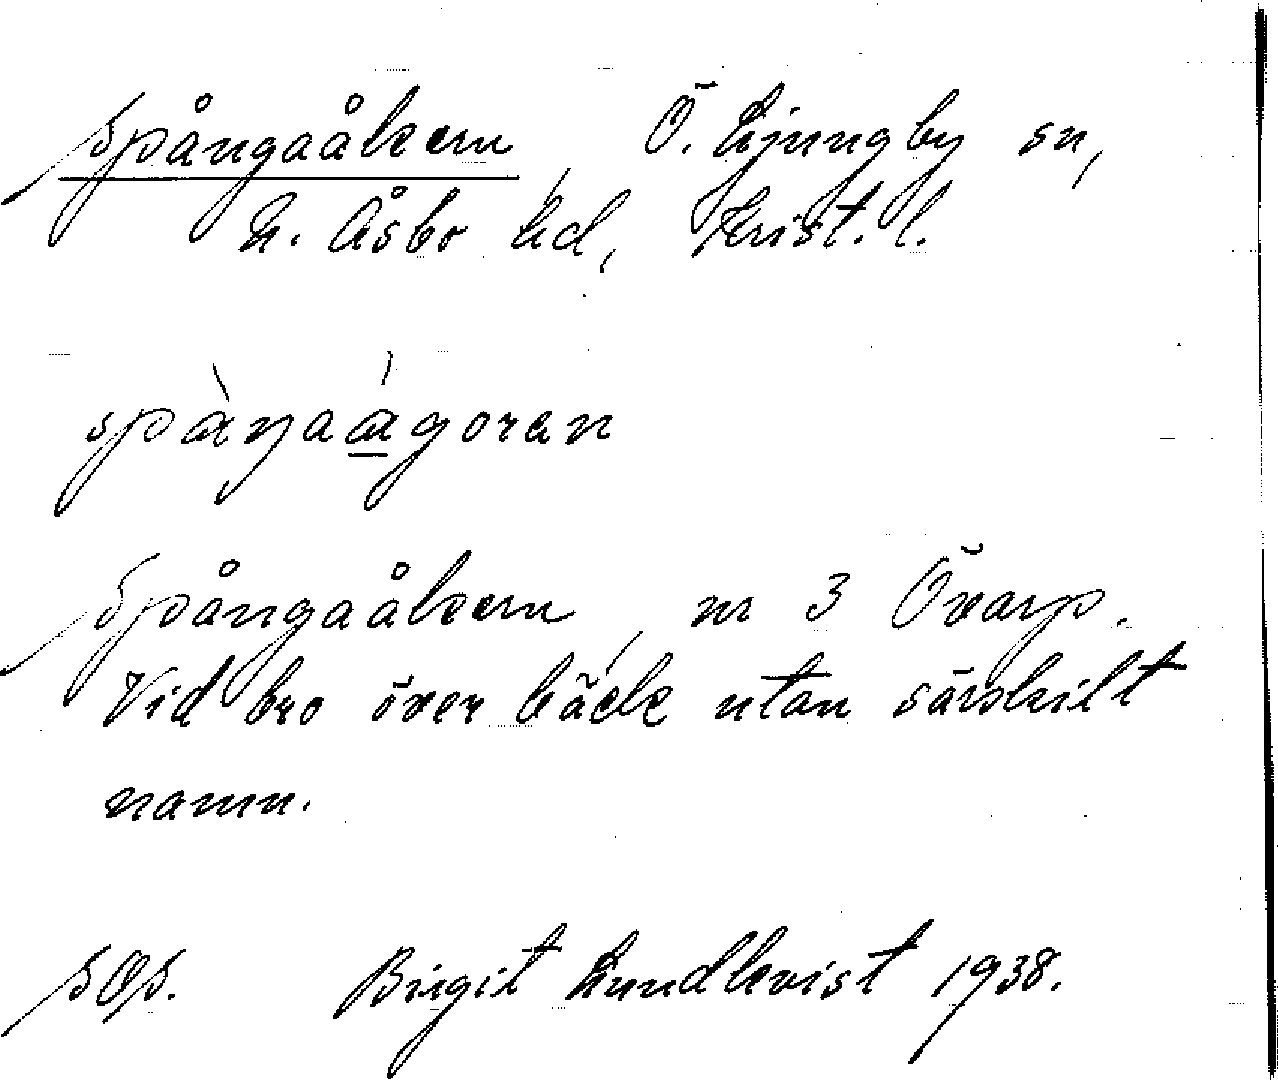 Spångaåkern, Ö. Ljungby sn,
N. Åsbo hd, Krist. l.
spàŋaágoren
Spångaåkern, nr 3 Övarp.
Vid bro över bäck utan särskilt
namn.
Birgit Lundkvist 1938.